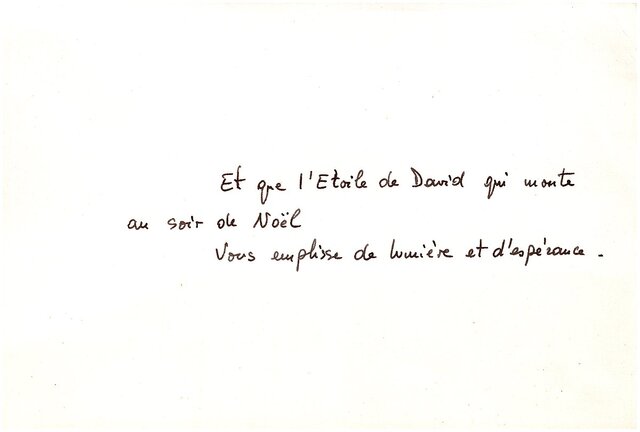 Et que l'Etoile de David qui monte
au soir de Noël
Vous emplisse de lumière et d'espérance.